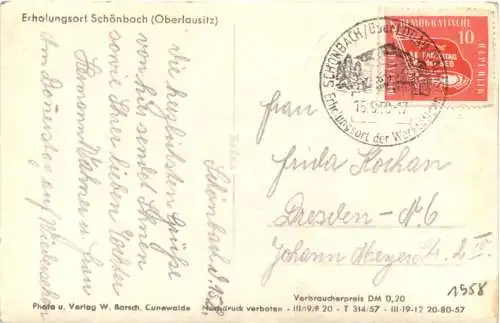 Erholungsort Schönbach (Oberlausitz)
Schönbach d. 15.9.
Die herzlichsten Grüße
von hier sendet Ihnen
sowie Ihrer lieben Tochter
Hermann u. Frau
Am Donerstag auf Wiedersehen
DEMOKRATISCHE
REPUBLIK
10
SCHÖNBACH/Oberlausitz
15.9.58-17
Erholungsort der Werktätigen
Frau
Frida Kochan
Dresden - N. 6
Johann Meyerstr. 2 IV.
1958
Verbraucherpreis DM 0,20
Photo u. Verlag W. Barsch, Cunewalde Nachdruck verboten - III/9/F 20 - T 314/57 - III-19-12 20-80-57